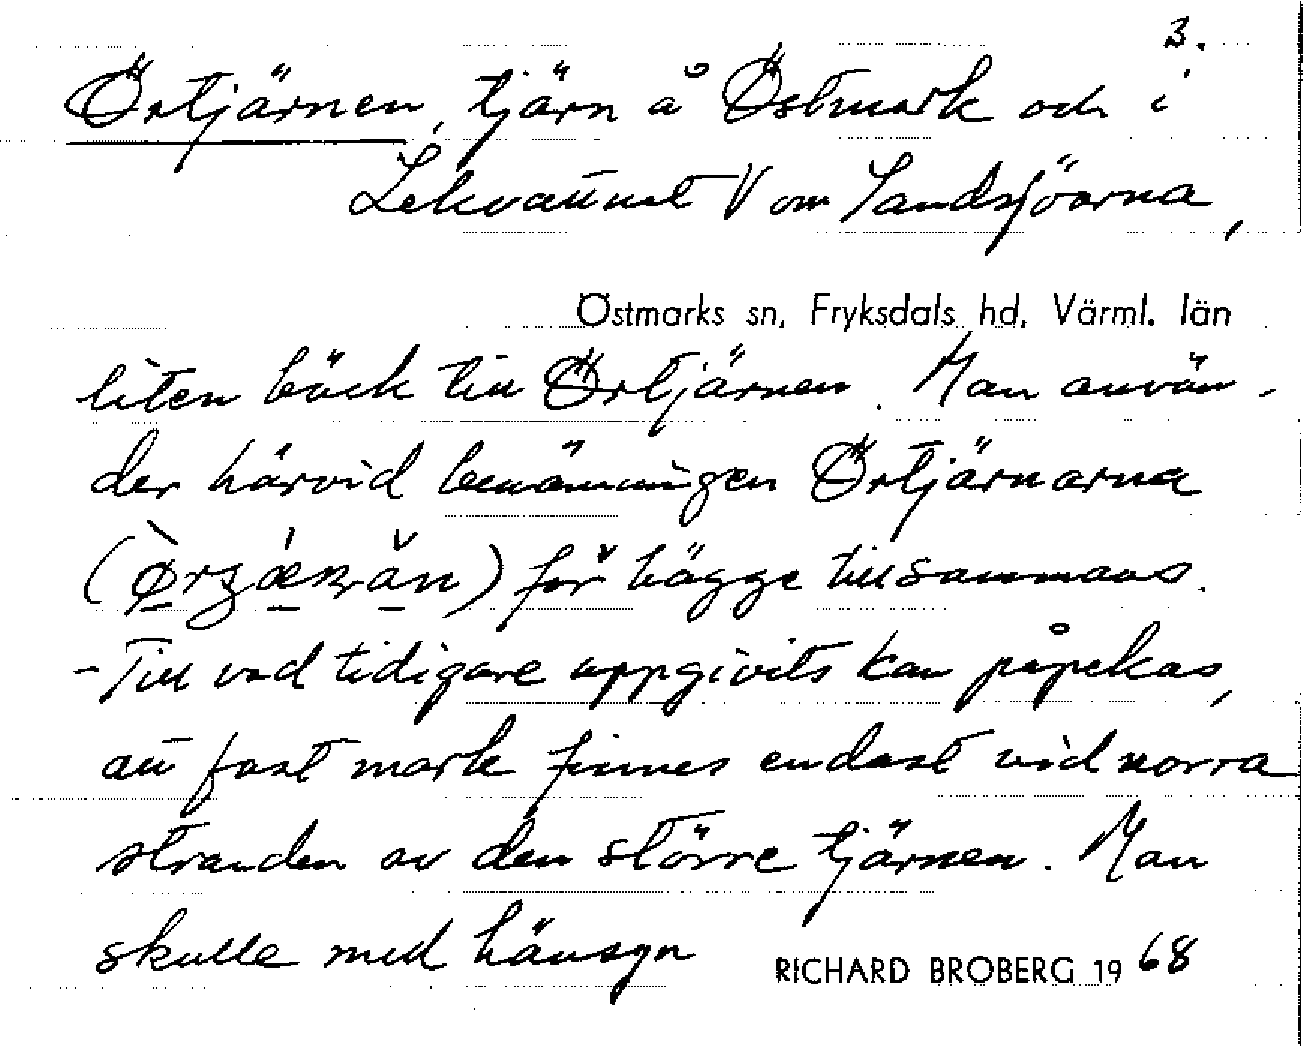 3.
Örtjärnen, tjärn å Östmark och i
Lekvattnet V om Sandsjöarna,
Östmarks sn, Fryksdals hd, Värml. län
liten bäck till Örtjärnen. Man använ-
der härvid benämningen Örtjärnarna
för bägge tillsammans.
- Till vad tidigare uppgivits kan påpekas,
att fast mark finnes endast vid norra
stranden av den större tjärnen. Man
skulle med hänsyn
RICHARD BROBERG 19 68